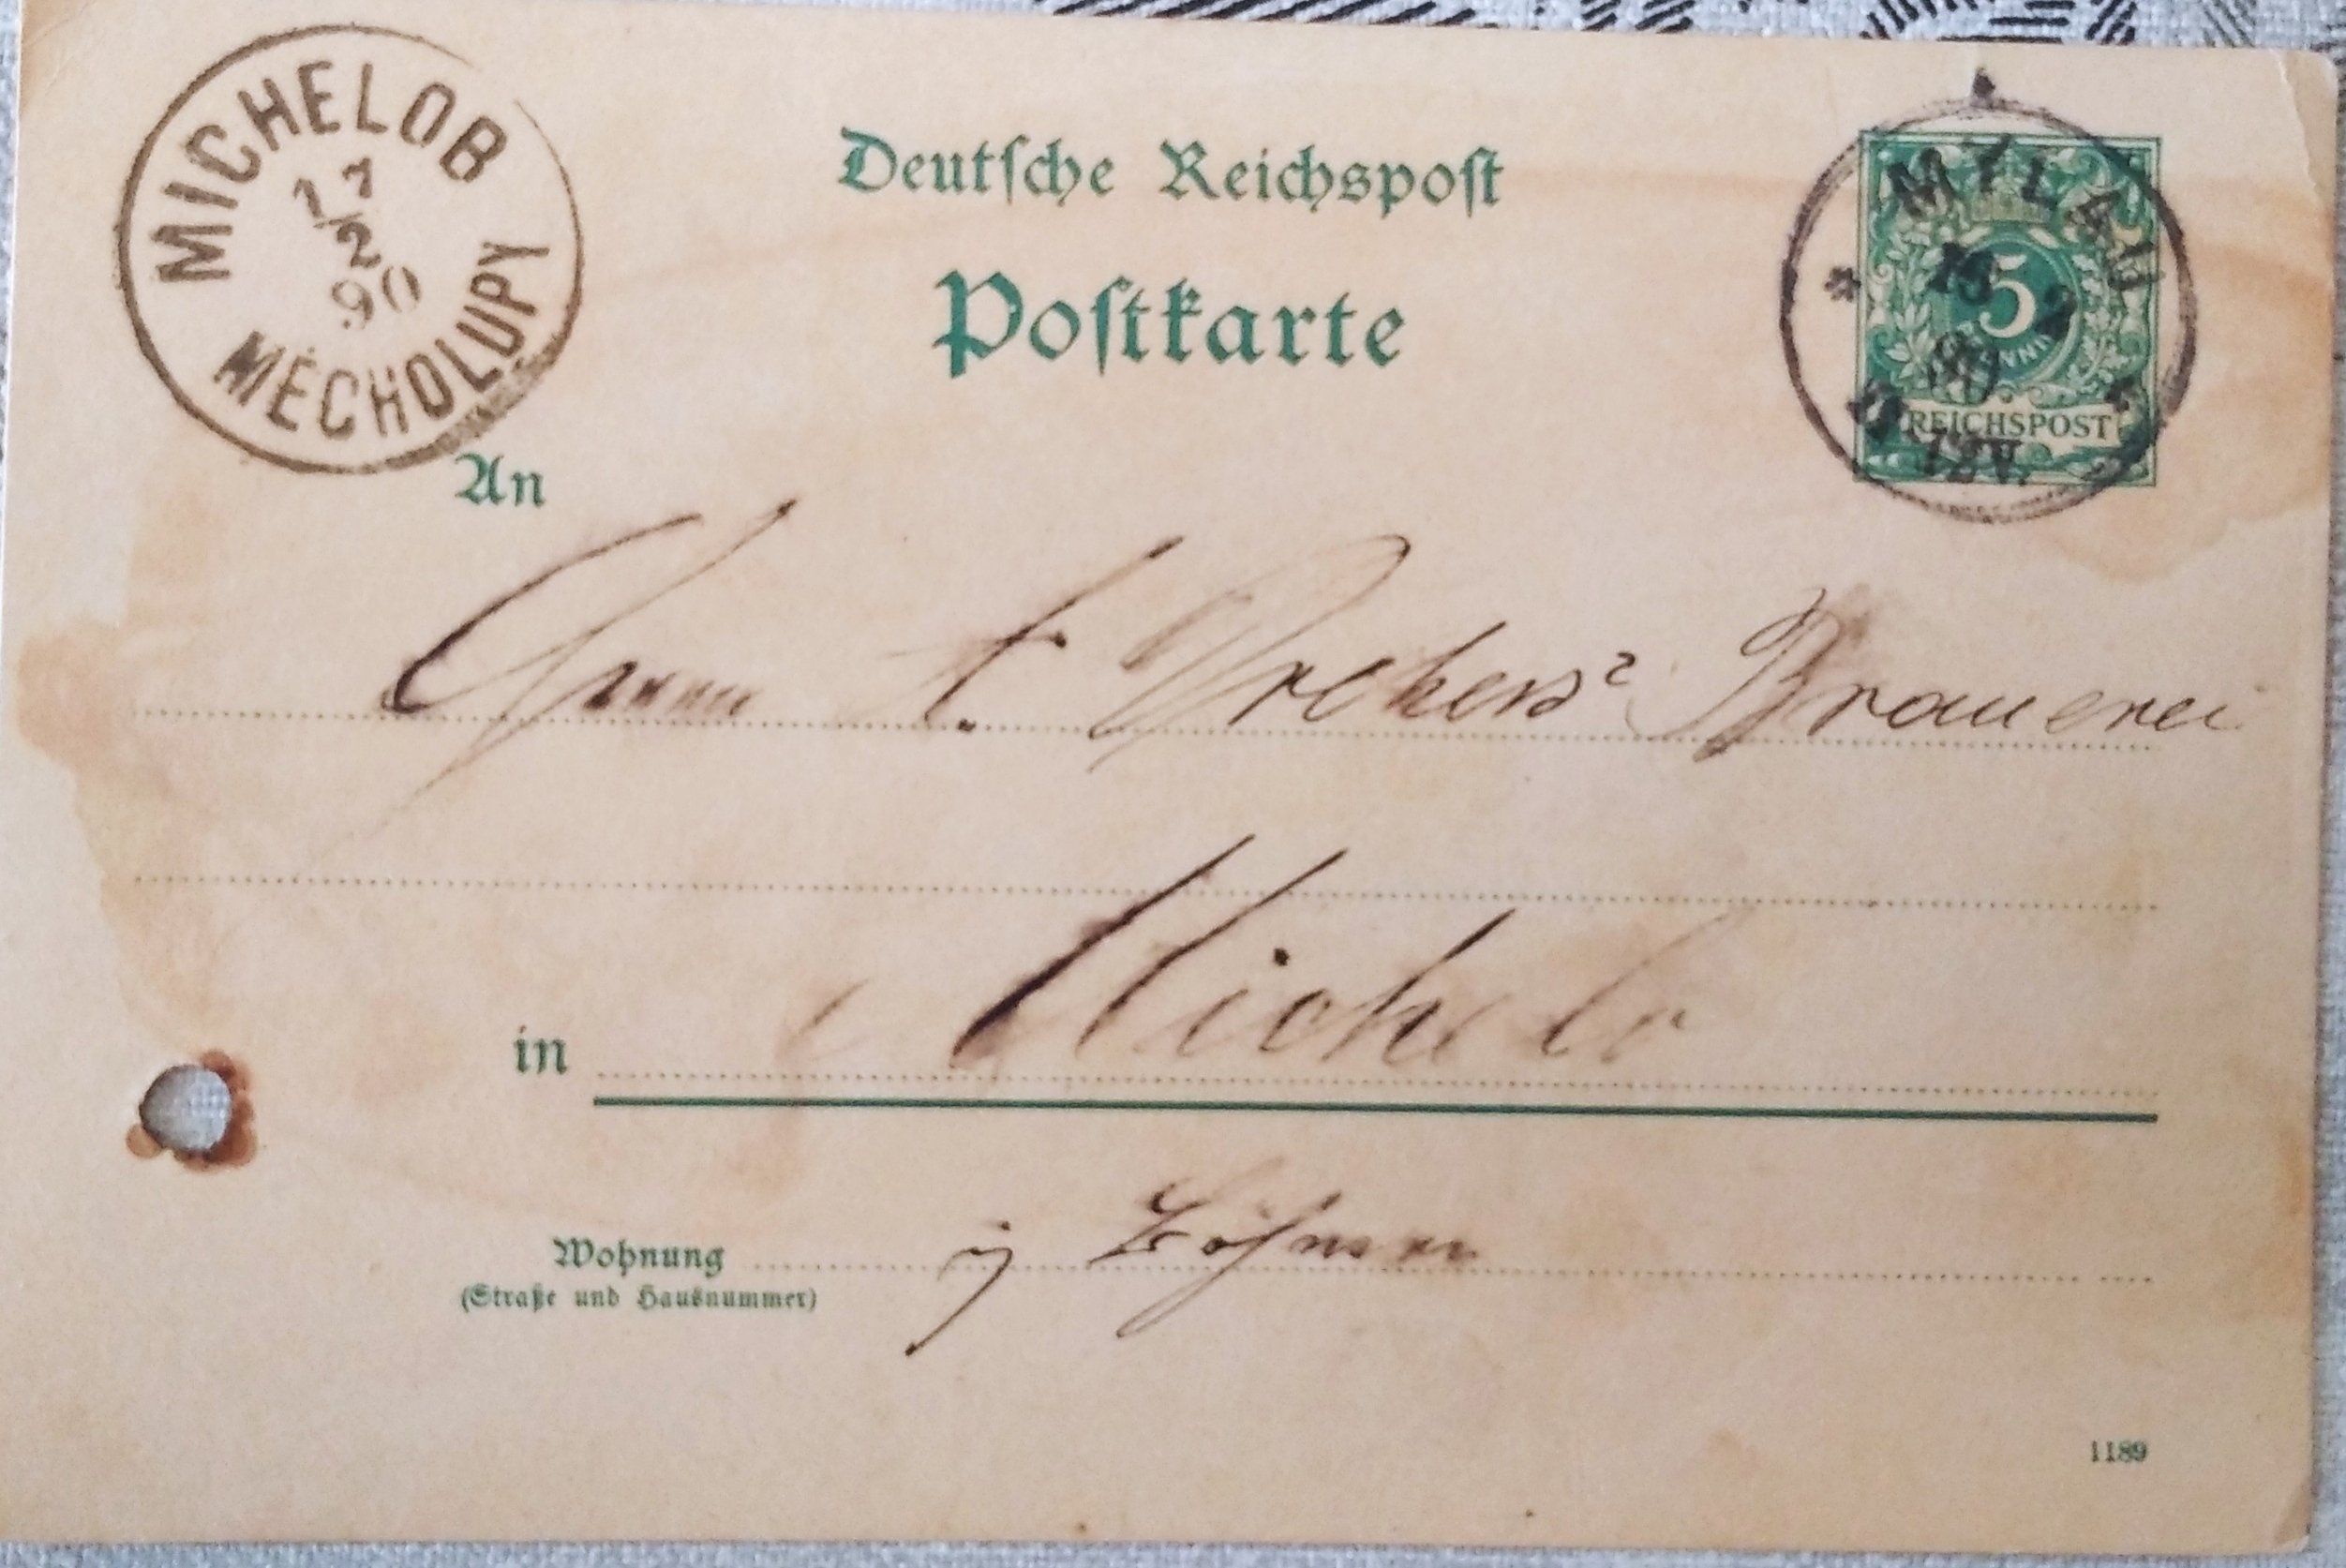 MICHELOB
17
2
90
MĚCHOLUPY
Deutsche Reichspost
Postkarte
MYLAU
90
5
REICHSPOST
12 V.
An
Herrn A. Drehers Brauerei
in Michelob
Wohnung i/ Böhmen
(Straße und Hausnummer)
1189